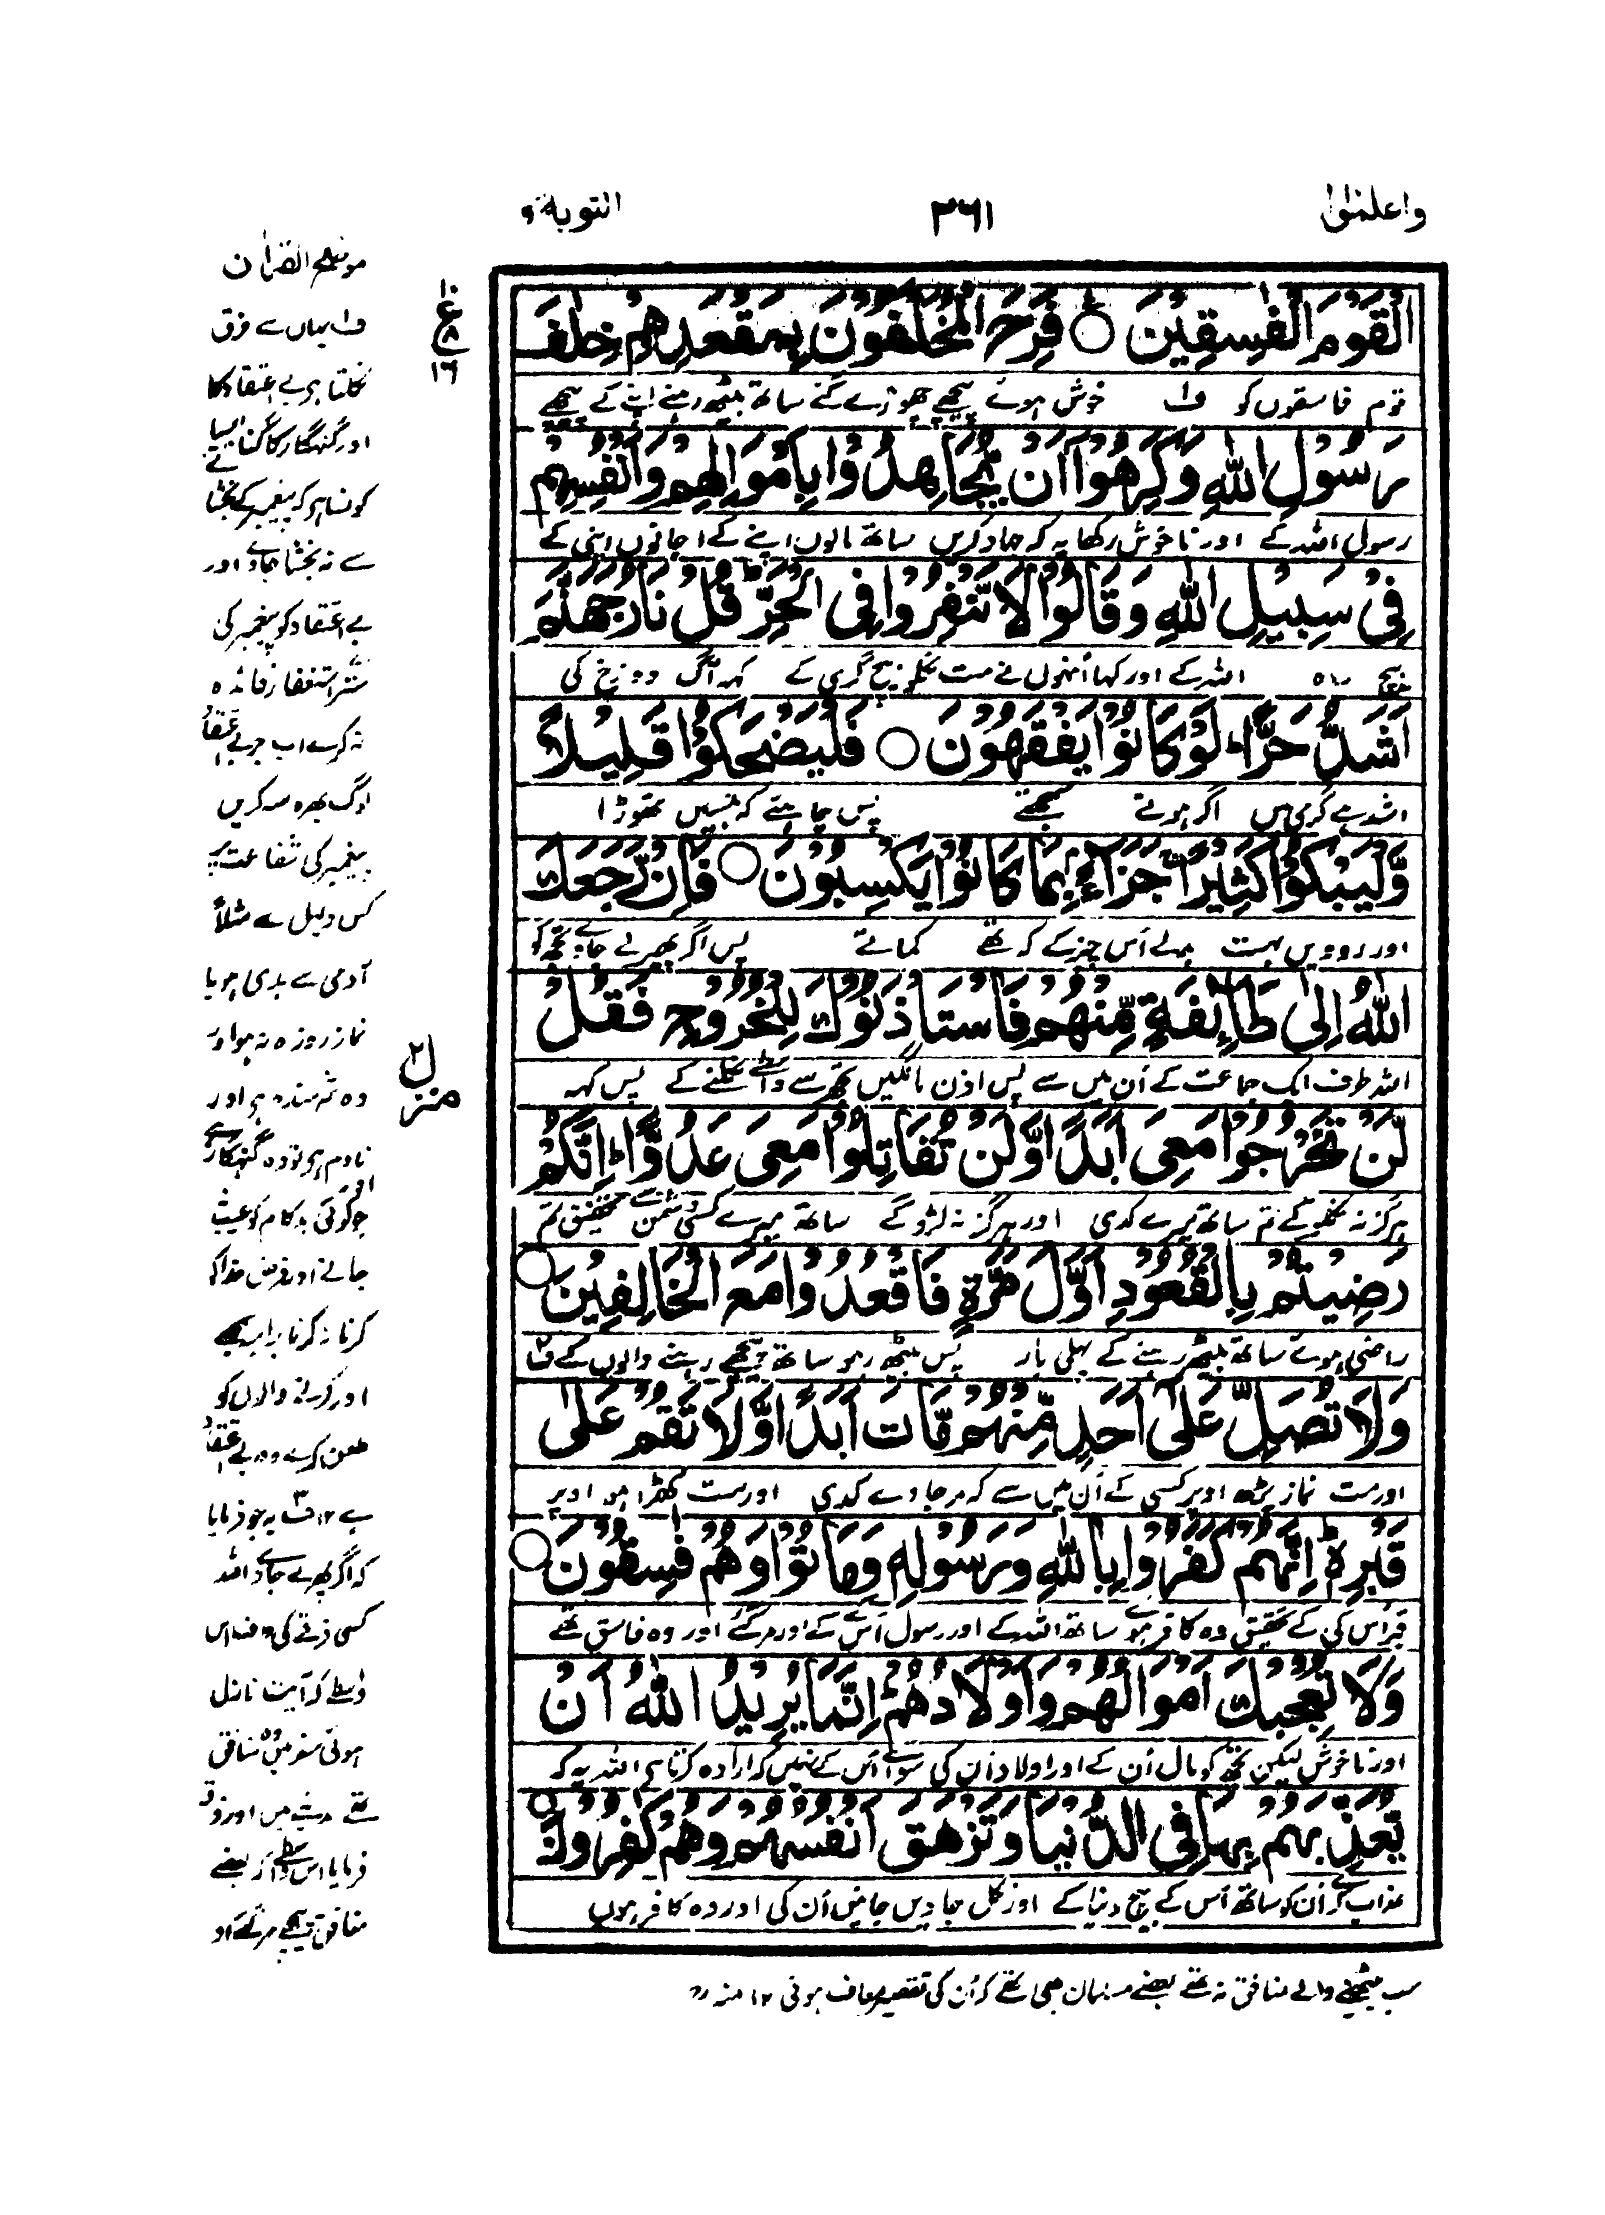 واعلموا ١٠
٣٦١
التوبة ٩
الْقَوْمَ الْفٰسِقِيْنَ ○ فَرِحَ الْمُخَلَّفُوْنَ بِمَقْعَدِهِمْ خِلٰفَ
قوم فاسقوں کو ف۱ خوش ہوئے پیچھے چھوڑے گئے ساتھ بیٹھ رہنے اپنے کے پیچھے
رَسُوْلِ اللّٰهِ وَكَرِهُوْٓا اَنْ يُّجَاهِدُوْا بِاَمْوَالِهِمْ وَاَنْفُسِهِمْ
رسول اللہ کے اور ناخوش رکھا یہ کہ جہاد کریں ساتھ مالوں اپنے کے اجانوں اپنی کے
فِيْ سَبِيْلِ اللّٰهِ وَقَالُوْا لَا تَنْفِرُوْا فِي الْحَرِّ ؕ قُلْ نَارُ جَهَنَّمَ
بیچ راہ اللہ کے اور کہا اُنہوں نے مت نکلو بیچ گرمی کے کہہ آگ دوزخ کی
اَشَدُّ حَرًّا ؕ لَوْ كَانُوْا يَفْقَهُوْنَ ○ فَلْيَضْحَكُوْا قَلِيْلًا
اشد ہے گرمی میں اگر ہوتے سمجھتے پس چاہئے کہ ہنسیں تھوڑا
وَّلْيَبْكُوْا كَثِيْرًا ۚ جَزَآءًۢ بِمَا كَانُوْا يَكْسِبُوْنَ ○ فَاِنْ رَّجَعَكَ
اور روویں بہت بدلے اُس چیز کے کہ تھے کماتے پس اگر پھر لے جاوے تجھ کو
اللّٰهُ اِلٰى طَآئِفَةٍ مِّنْهُمْ فَاسْتَاْذَنُوْكَ لِلْخُرُوْجِ فَقُلْ
اللہ طرف ایک جماعت کے اُن میں سے پس اذن مانگیں تجھ سے واسطے نکلنے کے پس کہہ
لَّنْ تَخْرُجُوْا مَعِيَ اَبَدًا وَّلَنْ تُقَاتِلُوْا مَعِيَ عَدُوًّا ؕ اِنَّكُمْ
ہرگز نہ نکلو گے تم ساتھ میرے کدی اور ہرگز نہ لڑو گے ساتھ میرے کسی دشمن سے تحقیق تم
رَضِيْتُمْ بِالْقُعُوْدِ اَوَّلَ مَرَّةٍ فَاقْعُدُوْا مَعَ الْخَالِفِيْنَ ○
راضی ہوئے ساتھ بیٹھ رہنے کے پہلی بار پس بیٹھ رہو ساتھ پیچھے رہنے والوں کے ف۲
وَلَا تُصَلِّ عَلٰٓى اَحَدٍ مِّنْهُمْ مَّاتَ اَبَدًا وَّلَا تَقُمْ عَلٰى
اور مت نماز پڑھ اوپر کسی کے اُن میں سے کہ مرجاوے کدی اور مت کھڑا ہو اوپر
قَبْرِهٖ ؕ اِنَّهُمْ كَفَرُوْا بِاللّٰهِ وَرَسُوْلِهٖ وَمَاتُوْا وَهُمْ فٰسِقُوْنَ ○
قبر اُس کی کے تحقیق وہ کافر ہوئے ساتھ اللہ کے اور رسول اُس کے اور مر گئے اور وہ فاسق تھے
وَلَا تُعْجِبْكَ اَمْوَالُهُمْ وَاَوْلَادُهُمْ ؕ اِنَّمَا يُرِيْدُ اللّٰهُ اَنْ
اور ناخوش لیکن تجھ کو مال اُن کے اور اولاد اُن کی سوائے اُس کے نہیں کہ ارادہ کرتا ہے اللہ یہ کہ
يُّعَذِّبَهُمْ بِهَا فِي الدُّنْيَا وَتَزْهَقَ اَنْفُسُهُمْ وَهُمْ كٰفِرُوْنَ ○
عذاب کرے اُن کو ساتھ اُس کے بیچ دنیا کے اور نکل جاویں جانیں اُن کی اور وہ کافر ہوں
ع
٨
١٦
منزل ٢
موضح القرآن
ف۱ یہاں سے فرق
نکلتا ہے بے اعتقاد کا
اور گنہگار کا گناہ ایسا
کونسا ہے کہ پیغمبر کے بخشائے
سے نہ بخشا جاوے اور
بے اعتقاد کو پیغمبر کی
ستر استغفار فائدہ
نہ کرے اب جو بے اعتقاد
لوگ بھروسہ کریں
پیغمبر کی شفاعت پر
کس دلیل سے مثلاً
آدمی سے بدی ہو یا
نماز روزہ نہ ہو اور
وہ شرمندہ ہے اور
نادم ہے تو وہ گنہگار ہے
اور
جو کوئی بدکام کو عیب
جانے اور فرض خدا کو
کرنا نہ کرنا برابر سمجھے
اور کرنے والوں کو
طعن کرے وہ بے اعتقاد
ہے ۱۲ ف۲ یہ جو فرمایا
کہ اگر پھر لے جاوے اللہ
کسی فرقے کی طرف اس
واسطے کہ آیت نازل
ہوئی سفر میں وہ منافق
تھے مدینے میں اور فرقہ
فرمایا اس واسطے کہ بعضے
منافق پیچھے مر گئے اور
سب بیٹھنے والے منافق نہ تھے بعضے مسلمان بھی تھے کہ اُن کی تقصیر معاف ہوئی ۱۲ منہ رح